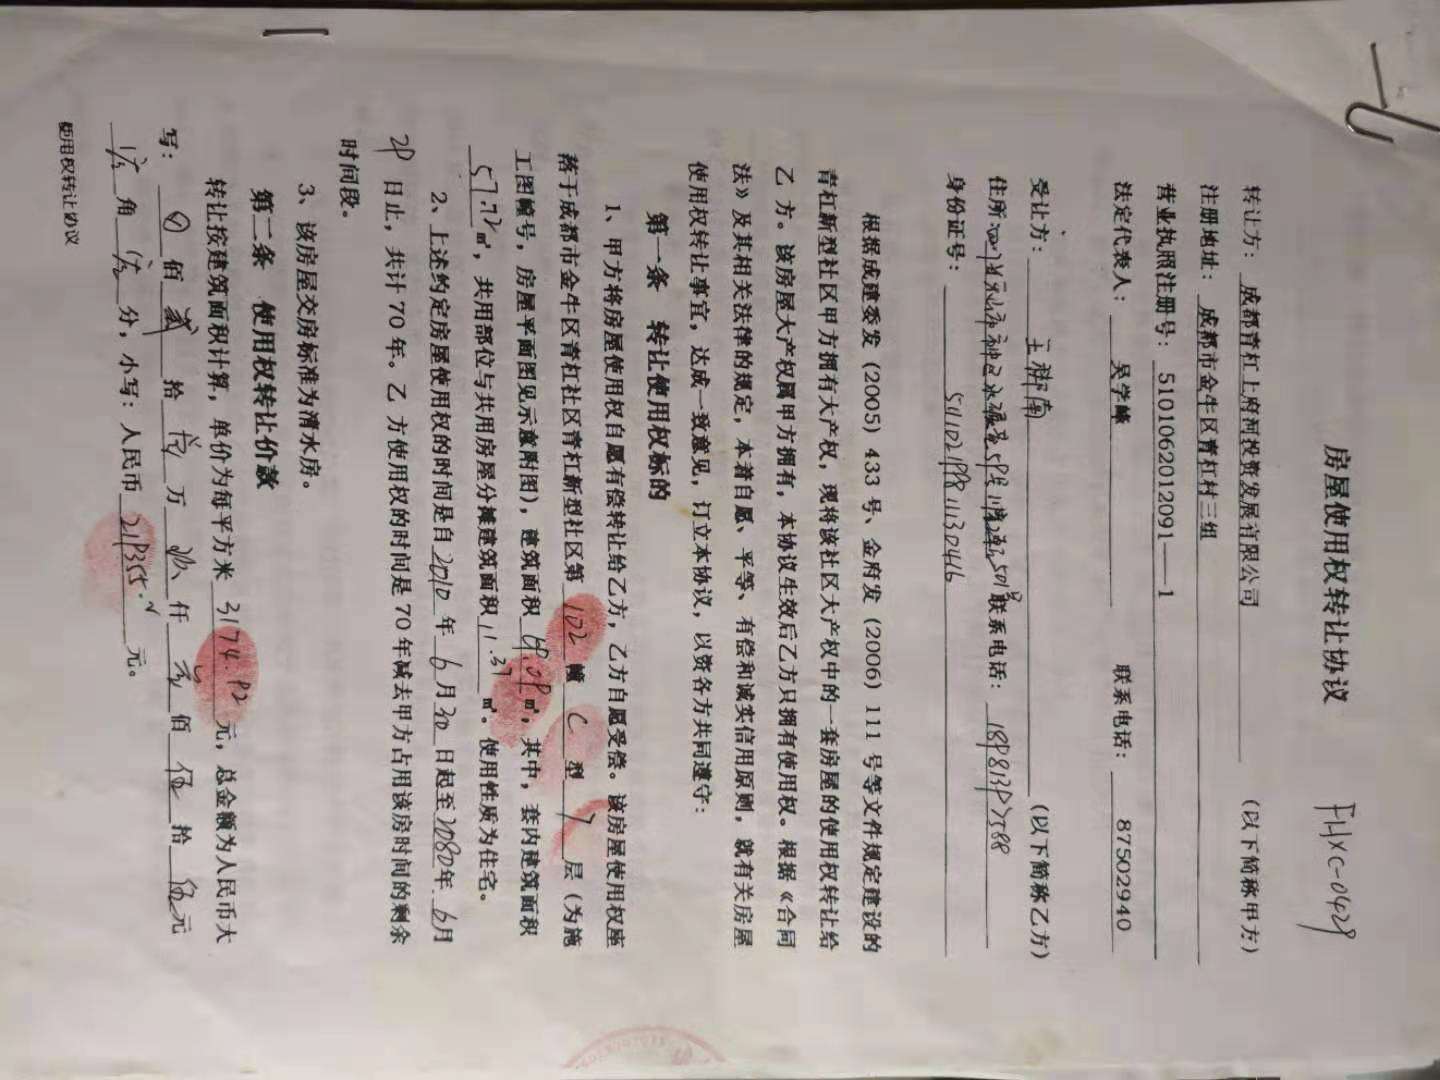 房屋使用权转让协议
FLXC-0429
转让方：成都青杠上府河投资发展有限公司（以下简称甲方）
注册地址：成都市金牛区青杠村三组
营业执照注册号：5101062012091——1
法定代表人：吴学峰 联系电话：87502940
受让方：（以下简称乙方）
住所： 联系电话：
身份证号：511102199111130416
根据成建委发（2005）433号、金府发（2006）111号等文件规定建设的
青杠新型社区甲方拥有大产权，现将该社区大产权中的一套房屋的使用权转让给
乙方。该房屋大产权属甲方拥有，本协议生效后乙方只拥有使用权。根据《合同
法》及其相关法律的规定，本着自愿、平等、有偿和诚实信用原则，就有关房屋
使用权转让事宜，达成一致意见，订立本协议，以资各方共同遵守：
第一条 转让使用权标的
1、甲方将房屋使用权自愿有偿转让给乙方，乙方自愿受偿。该房屋使用权座
落于成都市金牛区青杠社区青杠新型社区第102幢C型7层（为施
工图幢号，房屋平面图见示意附图），建筑面积69.09㎡，其中，套内建筑面积
57.72㎡，共用部位与共用房屋分摊建筑面积11.37㎡。使用性质为住宅。
2、上述约定房屋使用权的时间是自2010年6月30日起至2080年6月
29日止，共计70年。乙方使用权的时间是70年减去甲方占用该房时间的剩余
时间段。
3、该房屋交房标准为清水房。
第二条 使用权转让价款
转让按建筑面积计算，单价为每平方米3174.92元，总金额为人民币大
写：佰贰拾万仟佰伍拾伍元
角分，小写：人民币219355.元。
使用权转让协议